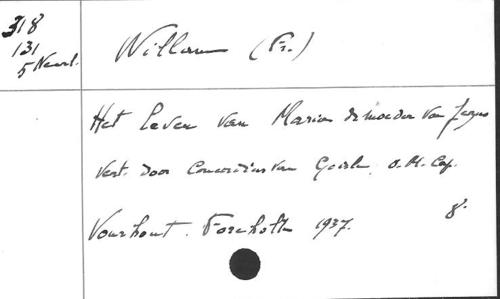 318
131
5 Neerl.
Willam (Fr.)
Het leven van Maria de moeder van Jezus
vert. door Concordius van Goirle, o.M.Cap.
Voorhout. Foreholte 1937. 8°